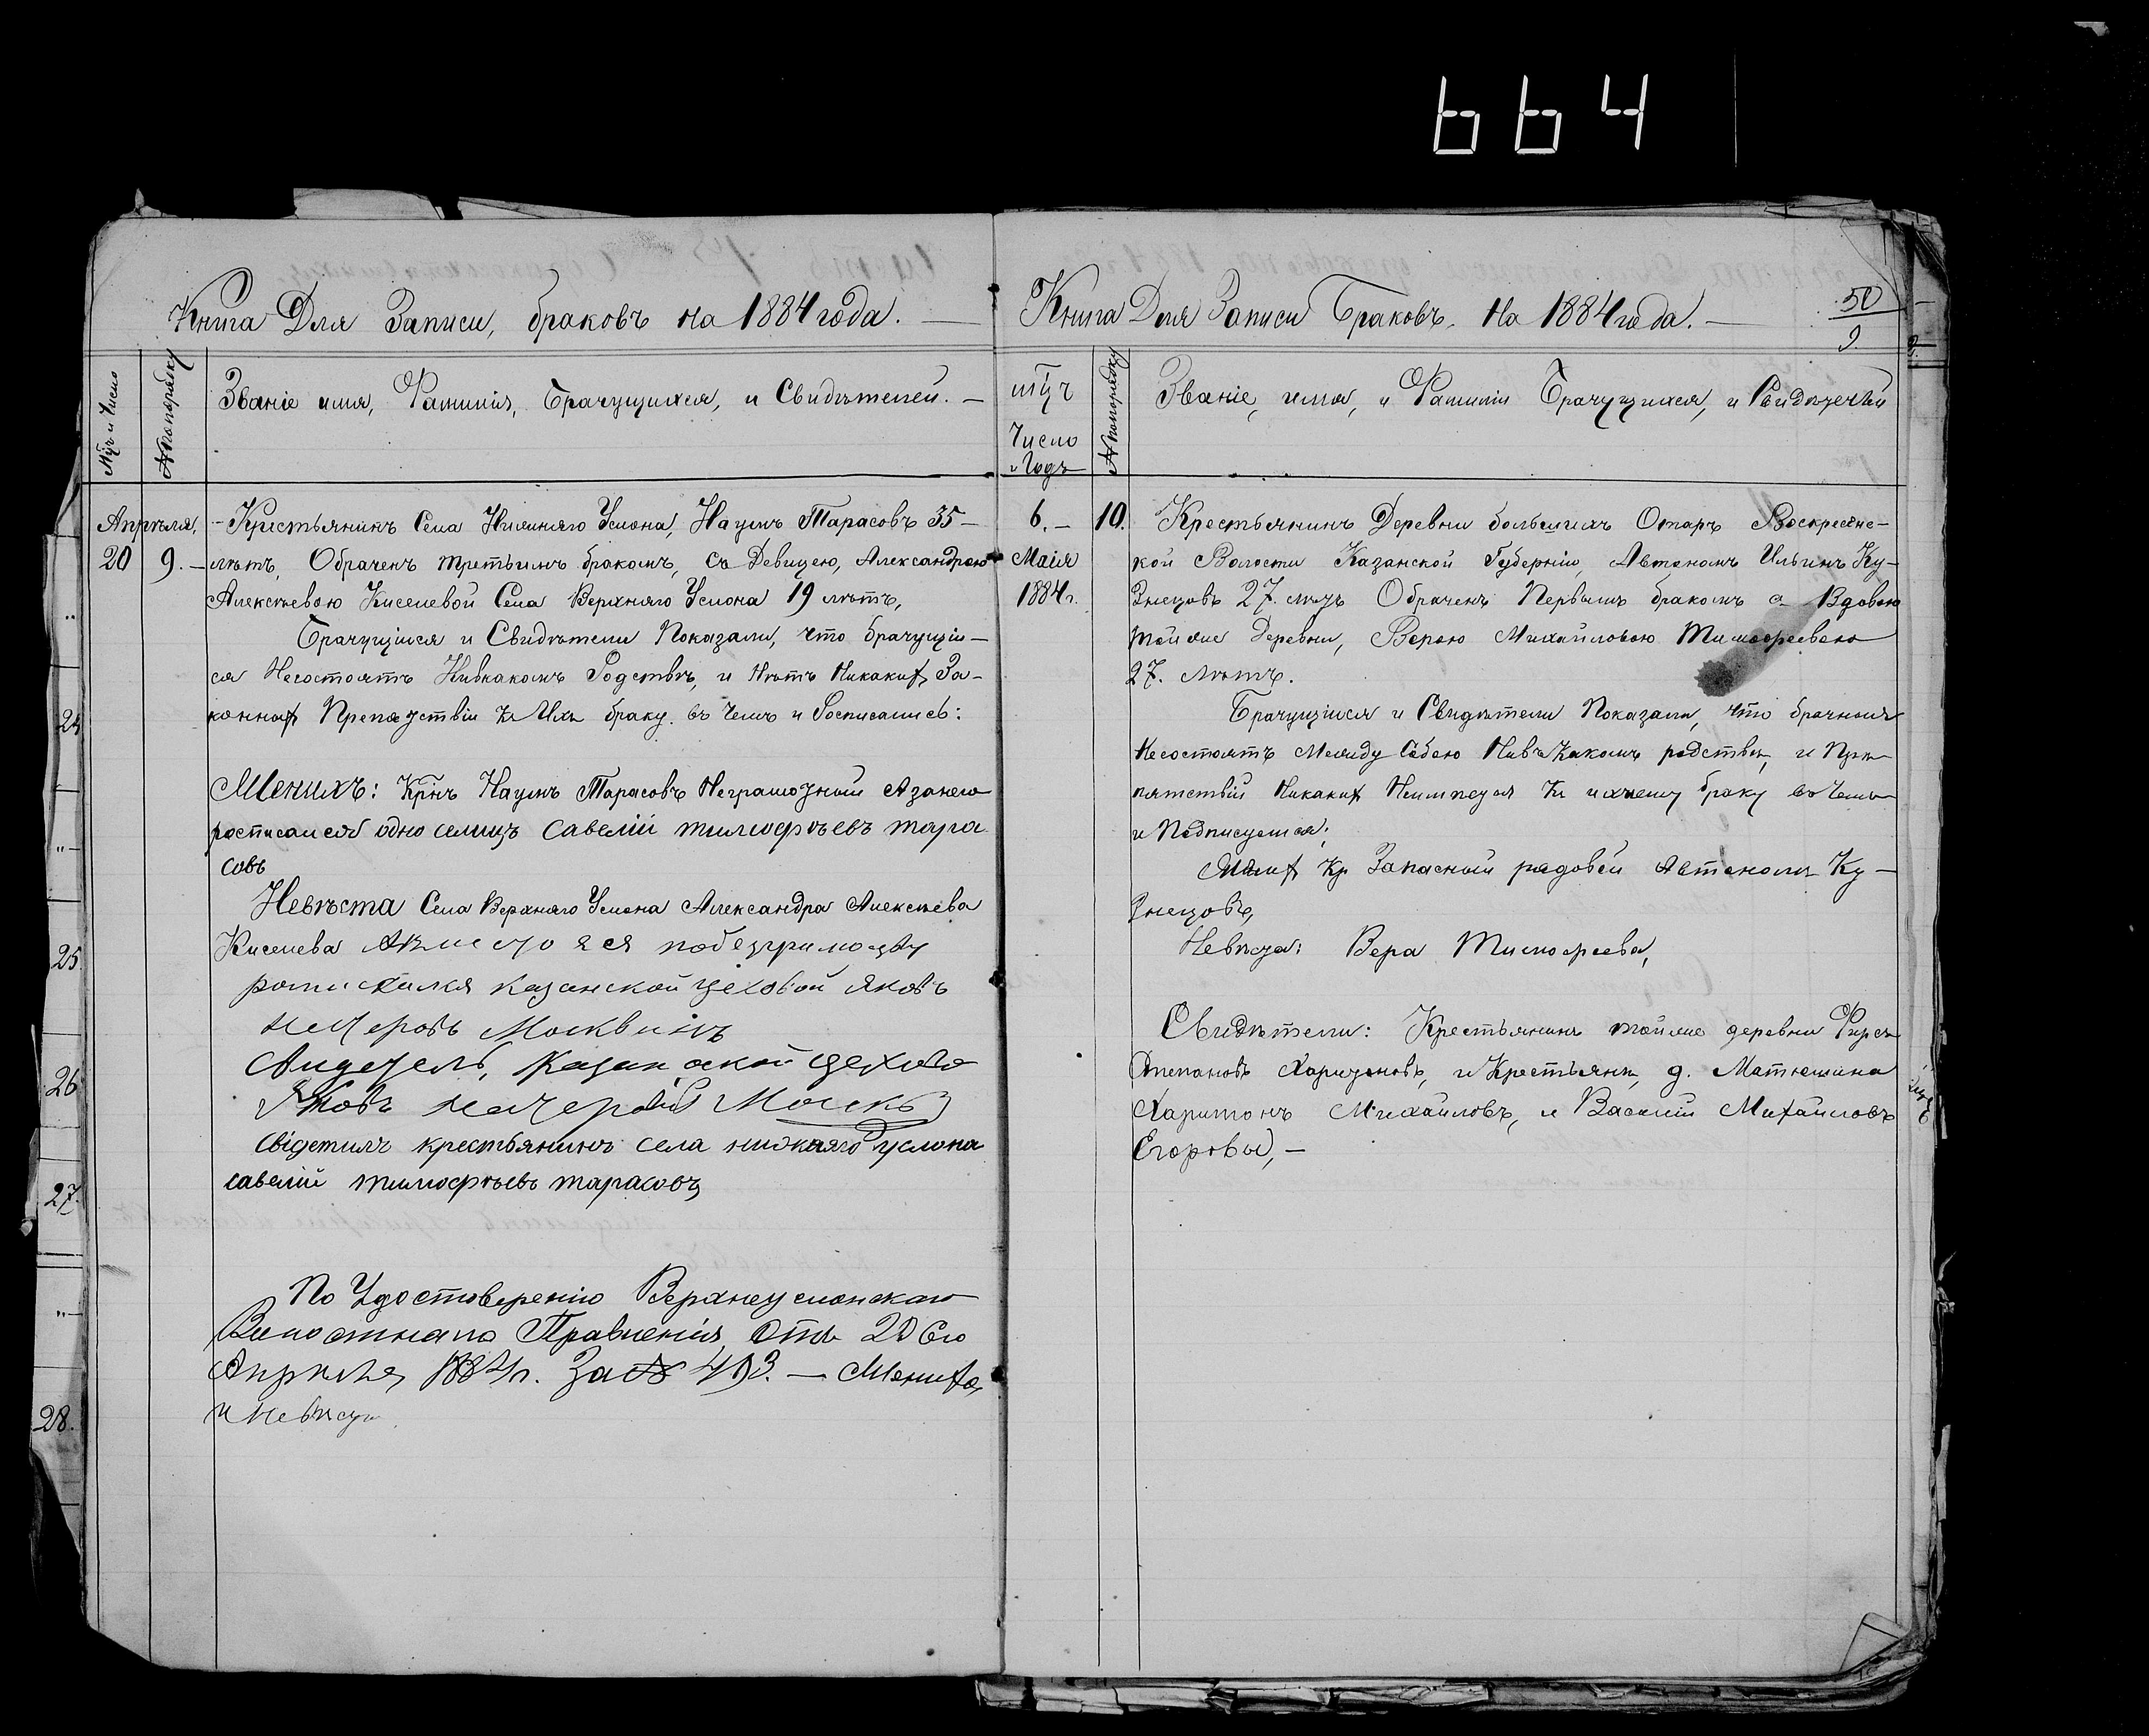 664
Книга Для Записи, браковъ на 1884 года. —
Мцъ и Число
№ попорядку
Званіе имя, Фамилія, Брачущихся, и Свидѣтелей. —
Апрѣля,
20
9. —
- Крестьянинъ Села Нижняго Услона, Наумъ Тарасовъ 35 —
лѣтъ, Обраченъ третьимъ бракомъ, съ Девицею, Александрою
Алексѣевою Киселевой Села Верхняго Услона 19 лѣтъ,
Брачущіися и Свидѣтели Показали, что брачущіи —
ся Несостоятъ Нивкакомъ Родствѣ, и Нѣтъ Никаких За —
конных Препядствіи Къ Ихъ браку. въ Чемъ и Росписались:
Женихъ: Крнъ Наумъ Тарасовъ Неграмотный Азанево
росписался одно селицъ Савелій тимофѣевъ тара
совъ
Невѣста Села Верхняго Услона Александра Алексѣева
Киселева
казанской цеховой яковъ
Москвинъ
Яковъ
свідетилъ крестьянинъ села нижняго услона
савелій тимофѣевъ тарасовъ
По Удостоверенію Верхнеуслонскаго
Волостнаго Правленія Отъ 20 Сего
Апрѣля 1884 г. За № 493. — Жениха,
и невѣсты
24
25
26
27.
28.
Книга Для Записи Браковъ. На 1884 года. —
50
9.
мцъ
Число
и Годъ
№ попорядку
Званіе, имя, и Фамиліи Брачущихся, и Свидѣтелей
6. —
Маія
1884 г.
10.
Крестьянинъ Деревни большихъ Отаръ Воскресен —
кой Волости Казанской Губерніи, Автаномъ Ильинъ Ку —
знецовъ 27. лѣтъ Обраченъ Первымъ бракомъ с Вдовою
тойже Деревни, Верою Михайловою Тимофеевою
27. лѣтъ.
Брачущіися и Свидѣтели Показали, что брачныя
Несостоятъ Между Собою Нивъ Какомъ родствѣ, и Пре
пятствіи Никаких Неимѣется Къ ихнему браку въ Чемъ
и Подписуемся;
Жених Кр Запасный рядовой Автаномъ Ку —
знецовъ,
Невѣста: Вера Тимофеева,
Свидѣтели: Крестьянинъ тойже деревни Фирсъ
Степановъ Харитоновъ, и Крестьянъ, д. Матюшина
Харитонъ Михайловъ, и Василій Михайловъ
Егоровы, —